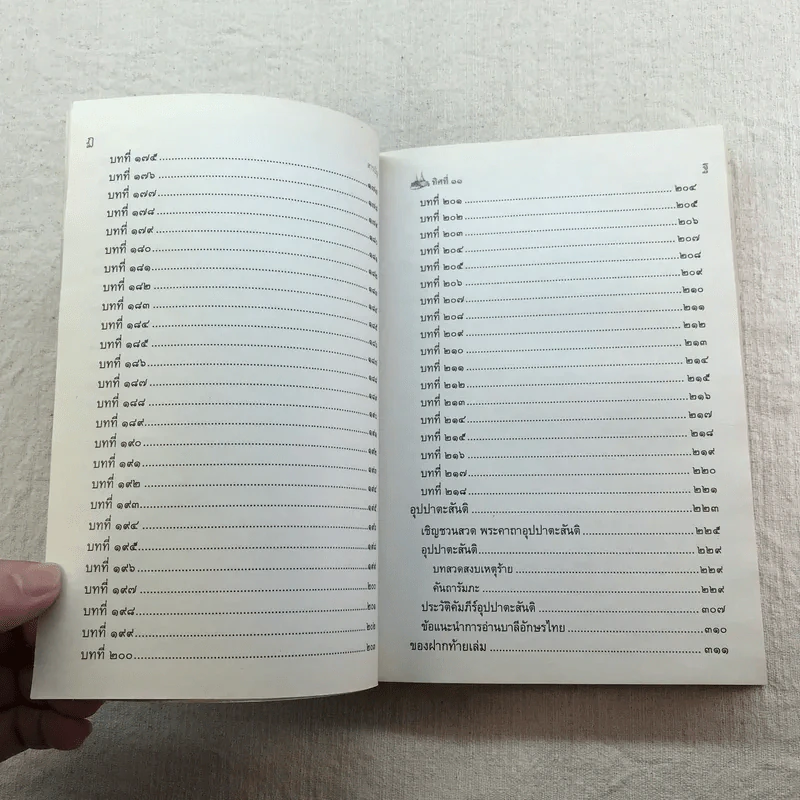 บทที่ ๑๗๕
บทที่ ๑๗๖
บทที่ ๑๗๗
บทที่ ๑๗๘
บทที่ ๑๗๙
บทที่ ๑๘๐
บทที่ ๑๘๑
บทที่ ๑๘๒
บทที่ ๑๘๓
บทที่ ๑๘๔
บทที่ ๑๘๕
บทที่ ๑๘๖
บทที่ ๑๘๗
บทที่ ๑๘๘
บทที่ ๑๘๙
บทที่ ๑๙๐
บทที่ ๑๙๑
บทที่ ๑๙๒
บทที่ ๑๙๓
บทที่ ๑๙๔
บทที่ ๑๙๕
บทที่ ๑๙๖
บทที่ ๑๙๗ ๒๐๐
บทที่ ๑๙๘ ๒๐๑
บทที่ ๑๙๙ ๒๐๒
บทที่ ๒๐๐ ๒๐๓
ทิศที่ ๑๑
บทที่ ๒๐๑ ๒๐๔
บทที่ ๒๐๒ ๒๐๕
บทที่ ๒๐๓ ๒๐๖
บทที่ ๒๐๔ ๒๐๗
บทที่ ๒๐๕ ๒๐๘
บทที่ ๒๐๖ ๒๐๙
บทที่ ๒๐๗ ๒๑๐
บทที่ ๒๐๘ ๒๑๑
บทที่ ๒๐๙ ๒๑๒
บทที่ ๒๑๐ ๒๑๓
บทที่ ๒๑๑ ๒๑๔
บทที่ ๒๑๒ ๒๑๕
บทที่ ๒๑๓ ๒๑๖
บทที่ ๒๑๔ ๒๑๗
บทที่ ๒๑๕ ๒๑๘
บทที่ ๒๑๖ ๒๑๙
บทที่ ๒๑๗ ๒๒๐
บทที่ ๒๑๘ ๒๒๑
อุปปาตะสันติ ๒๒๓
เชิญชวนสวด พระคาถาอุปปาตะสันติ ๒๒๕
อุปปาตะสันติ ๒๒๙
บทสวดสงบเหตุร้าย ๒๒๙
คันถารัมภะ ๒๒๙
ประวัติคัมภีร์อุปปาตะสันติ ๓๐๗
ข้อแนะนำการอ่านบาลีอักษรไทย ๓๑๐
ของฝากท้ายเล่ม ๓๑๑